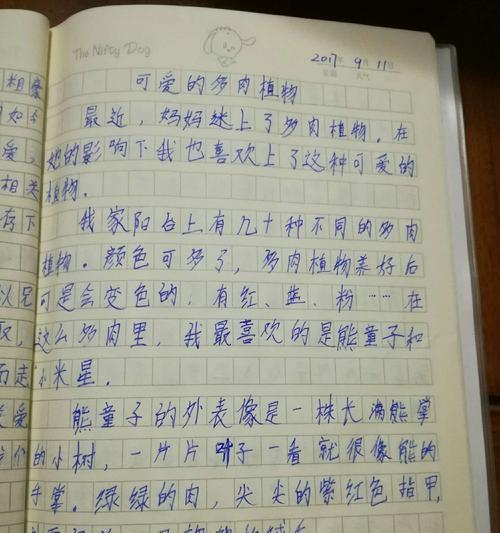 The Nifty Dog
2017年 9月 11日
星期 天气
可爱的多肉植物
最近，妈妈迷上了多肉植物。在
她的影响下我也喜欢上了这种可爱的
植物。
我家阳台上有几十种不同的多肉
植物。颜色可多了，多肉植物养好后
可是会变色的，有红、蓝、粉……在
这么多肉里，我最喜欢的是熊童子和
小米星。
熊童子的外表像是一株长满熊掌
的小树，一片片叶子一看就很像熊的
手掌。绿绿的肉，尖尖的紫红色指甲，